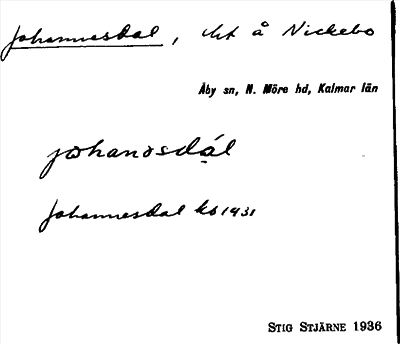 Johannesdal, lht å Nickebo
Åby sn, N. Möre hd, Kalmar län
johanosdạ́l
Johannesdal ks 1931
STIG STJÄRNE 1936